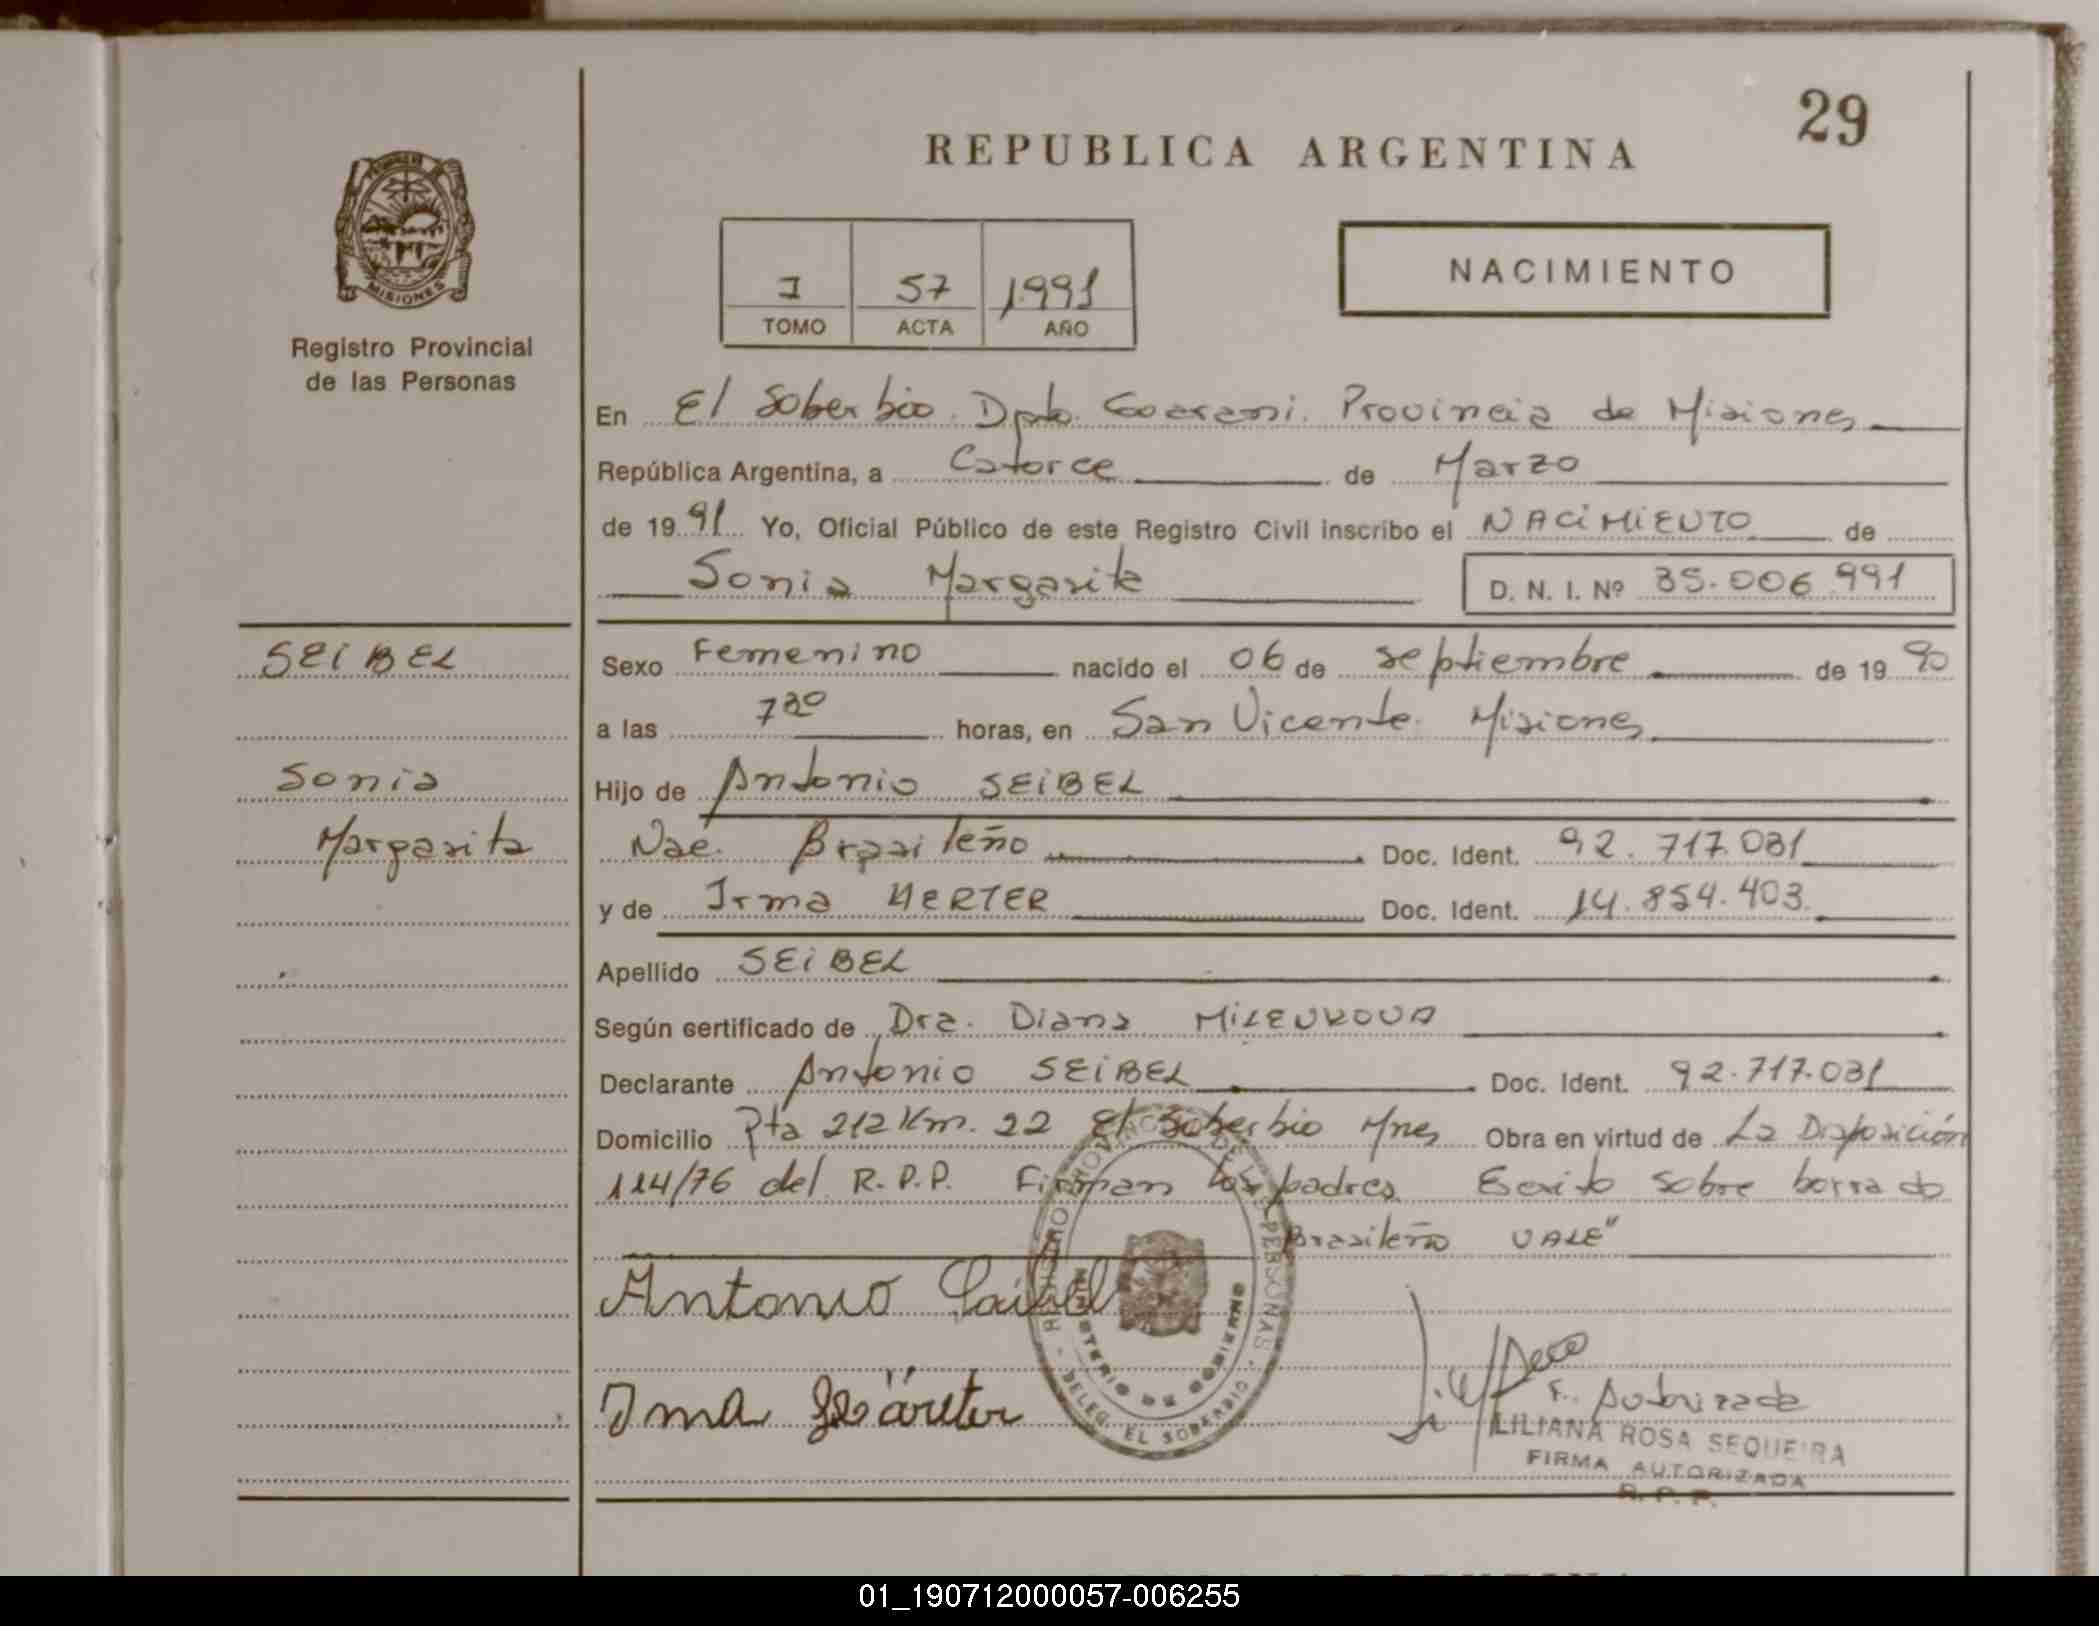 29
REPUBLICA ARGENTINA
MISIONES
Registro Provincial
de las Personas
I 57 1991
TOMO ACTA AÑO
NACIMIENTO
En El Soberbio. Dpto. Guarani. Provincia de Misiones
República Argentina, a Catorce de Marzo
de 19 91 Yo, Oficial Público de este Registro Civil inscribo el NACIMIENTO de
Sonia Margarita D. N. I. Nº 35.006.991
SEIBEL
Sonia
Margarita
Sexo Femenino nacido el 06 de septiembre de 19 90
a las 7 30 horas, en San Vicente. Misiones
Hijo de Antonio SEIBEL
Nac. Brasileño Doc. Ident. 92.717.031
y de Irma HERTER Doc. Ident. 14.854.403.
Apellido SEIBEL
Según certificado de Dra. Diana MILENKOVA
Declarante Antonio SEIBEL Doc. Ident. 92.717.031
Domicilio Rta 212 Km. 22 El Soberbio Mnes Obra en virtud de La Disposición
114/76 del R.P.P. Firman los padres Escrito sobre borrado
Brasileño VALE"
Antonio
REGISTRO PROVINCIAL DE LAS PERSONAS
MINISTERIO DE GOBIERNO
DELEG. EL SOBERBIO
F. Autorizada
LILIANA ROSA SEQUEIRA
FIRMA AUTORIZADA
R. P. P.
01_190712000057-006255